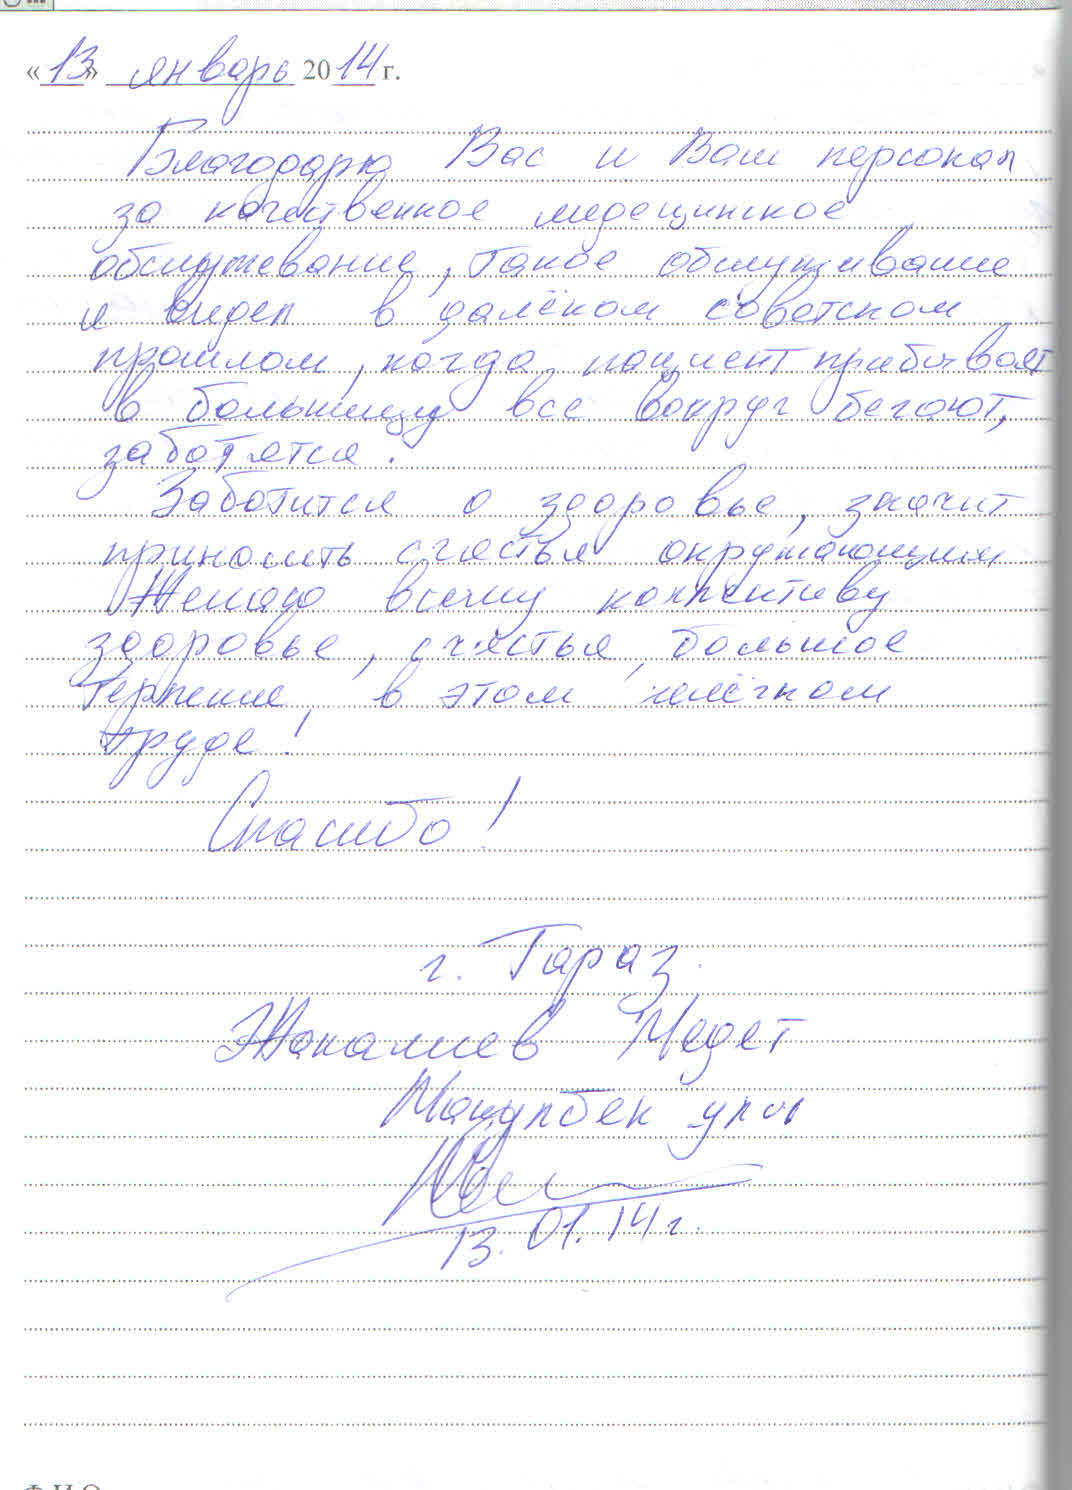 «13» январь 2014 г.
Благодарю Вас и Ваш персонал
за качественное медецинское
обслуживание, такое обслуживание
я видел в далёком советском
прошлом, когда пациент прибывает
в больницу все вокруг бегают,
заботятся.
Заботится о здоровье, значит
приносить счастья окружающим
Желаю всему коллективу
здоровье, счастья, большое
терпение, в этом нелёгком
труде!
Спасибо!
г. Тараз.
Жакалиев Медет
улы
13.01.14 г.
Ф.И.О.